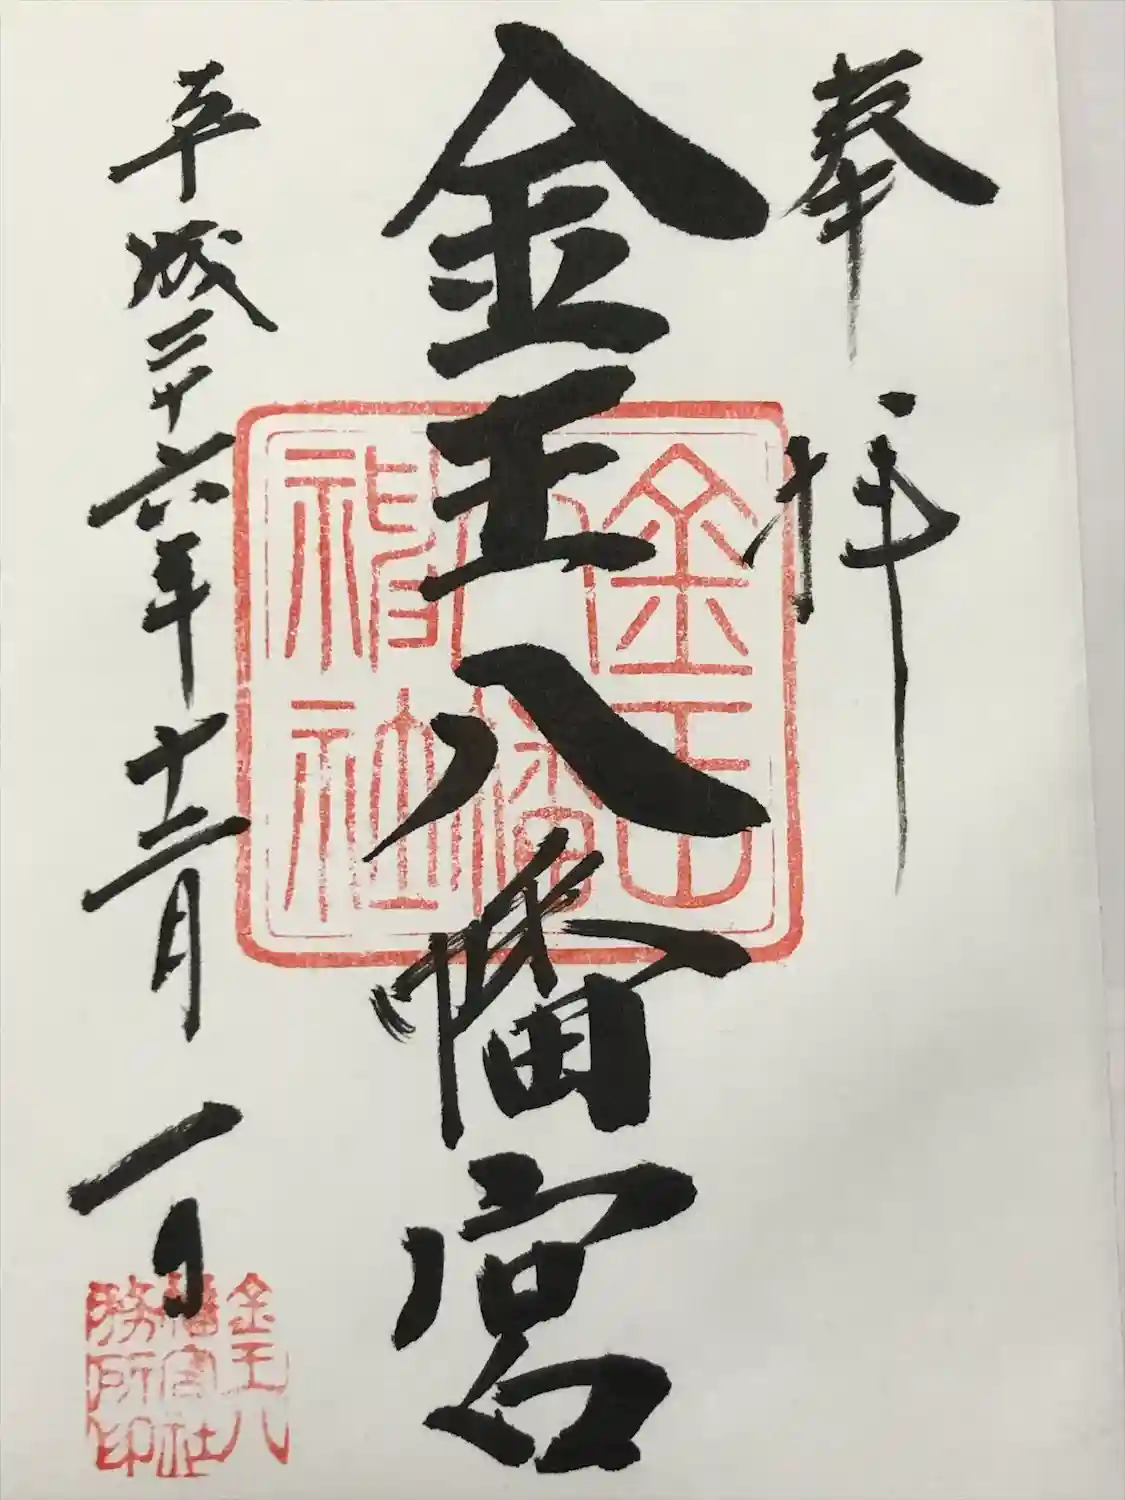 奉拝
金王八幡宮
平成二十六年十二月一日
金王八幡神社
金王八幡宮社務所印